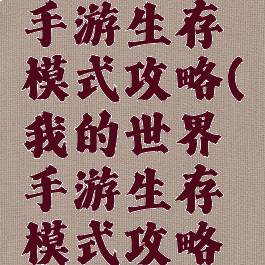 手游生存
模式攻略(
我的世界
手游生存
模式攻略